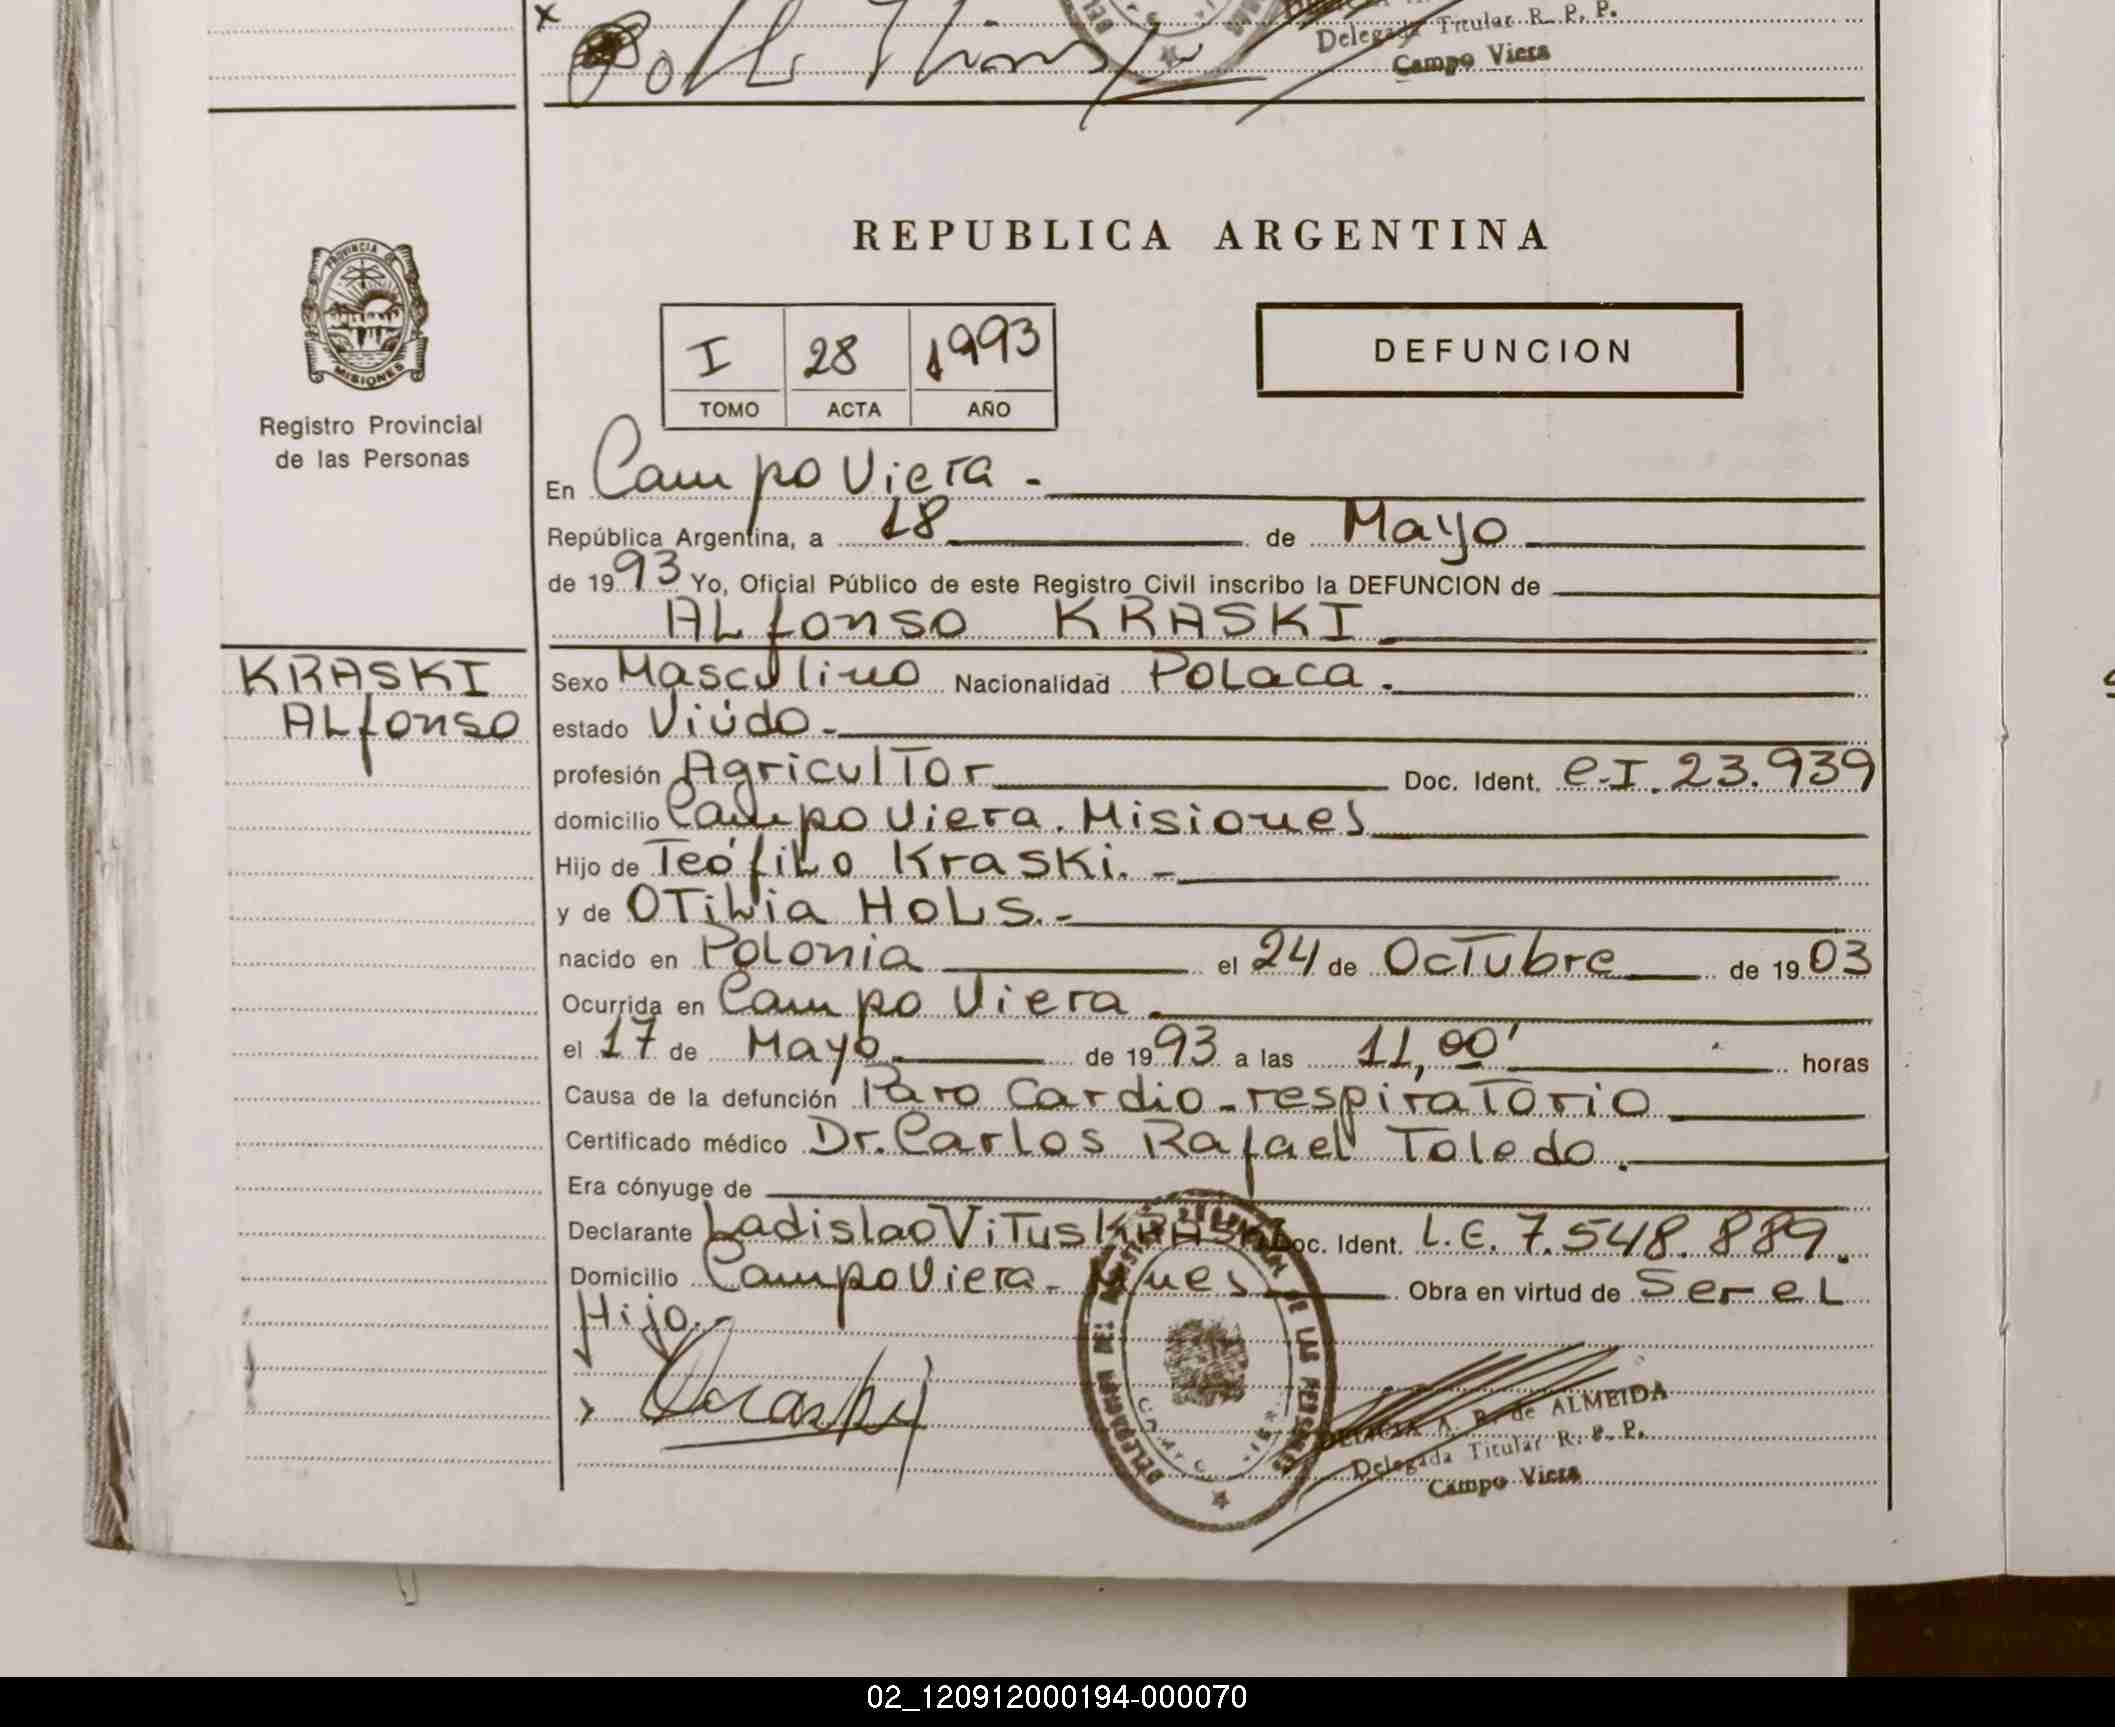 x
Delegada Titular R. P. P.
Campo Viera
REPUBLICA ARGENTINA
PROVINCIA DE
MISIONES
Registro Provincial
de las Personas
I 28 1993
TOMO ACTA AÑO
DEFUNCION
En Campo Viera.-
República Argentina, a 18 de Mayo
de 1993 Yo, Oficial Público de este Registro Civil inscribo la DEFUNCION de
ALfonso KRASKI
KRASKI
ALfonso
Sexo Masculino Nacionalidad Polaca.
estado Viúdo.-
profesión Agricultor Doc. Ident. e.I. 23.939
domicilio Campo Viera. Misiones
Hijo de Teófilo Kraski.-
y de OTilia HoLs.-
nacido en Polonia el 24 de Octubre de 1903
Ocurrida en Campo Viera.
el 17 de Mayo de 1993 a las 11,00' horas
Causa de la defunción Paro Cardio-respiratorio
Certificado médico Dr. Carlos Rafael Toledo.
Era cónyuge de
Declarante Ladislao Vitus KRASKI Doc. Ident. L.E. 7.548.889.
Domicilio Campo Viera- Mnes Obra en virtud de Ser eL
Hijo.-
x Kraski
DELEGACION DE LAS PERSONAS
DELICIA A. R. de ALMEIDA
Delegada Titular R. P. P.
Campo Viera
02_120912000194-000070